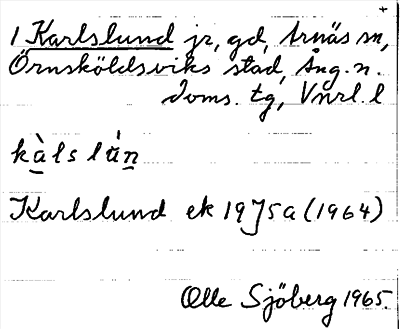 +
1 Karlslund jr, gd, Arnäs sn,
Örnsköldsviks stad, Ång. n.
doms. tg, Vnrl. l
kàlslún
Karlslund ek 19J5a (1964)
Olle Sjöberg 1965.